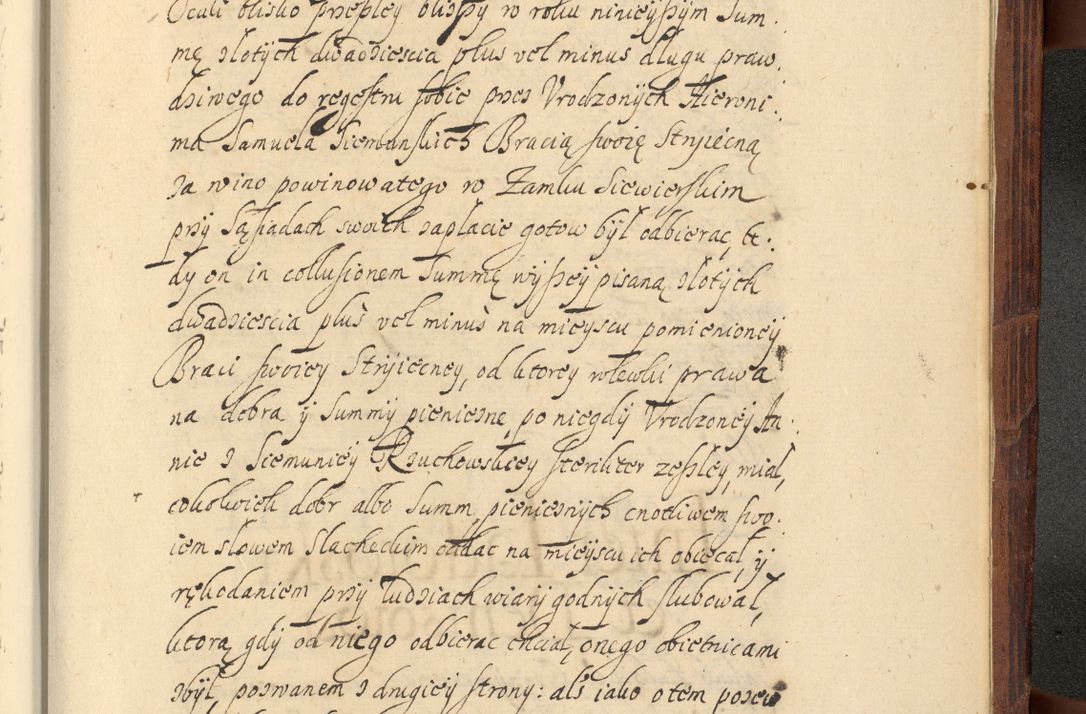 Oculi blisko przeszłey bliszy w roku ninieyszym Sum:
mę złotych dwadziescia plus vel minus długu praw:
dziwego do regestru sobie przez Vrodzonych Hieroni:
ma Samuela Siemonskich Bracią swoię Stryieczną
za wino powinowatego w Zamku Siewierskim
przy Sąsiadach swoich zaplacic gotow był odbierac, te:
dy on in collusionem Summę wyszey pisaną złotych
dwadziescia plus vel minus na mieyscu pomienioney
Braci swoiey Stryieczney, od ktorey wlewki prawa
na dobra y Summy pieniezne, po niegdy Vrodzoney An:
nie z Siemuniey Rzuchowskiey steriliter zeszley, mial,
cokolwiek dobr albo Summ pienieznych cnotliwem swo:
iem słowem Slacheckim oddac na mieyscu ich obiecal, y
rękodaniem przy ludziach wiary godnych slubował,
ktorą gdy od niego odbierac chciał, onego obietnicami
zbył, pozwanem z drugiey strony: als iako o tem pozew